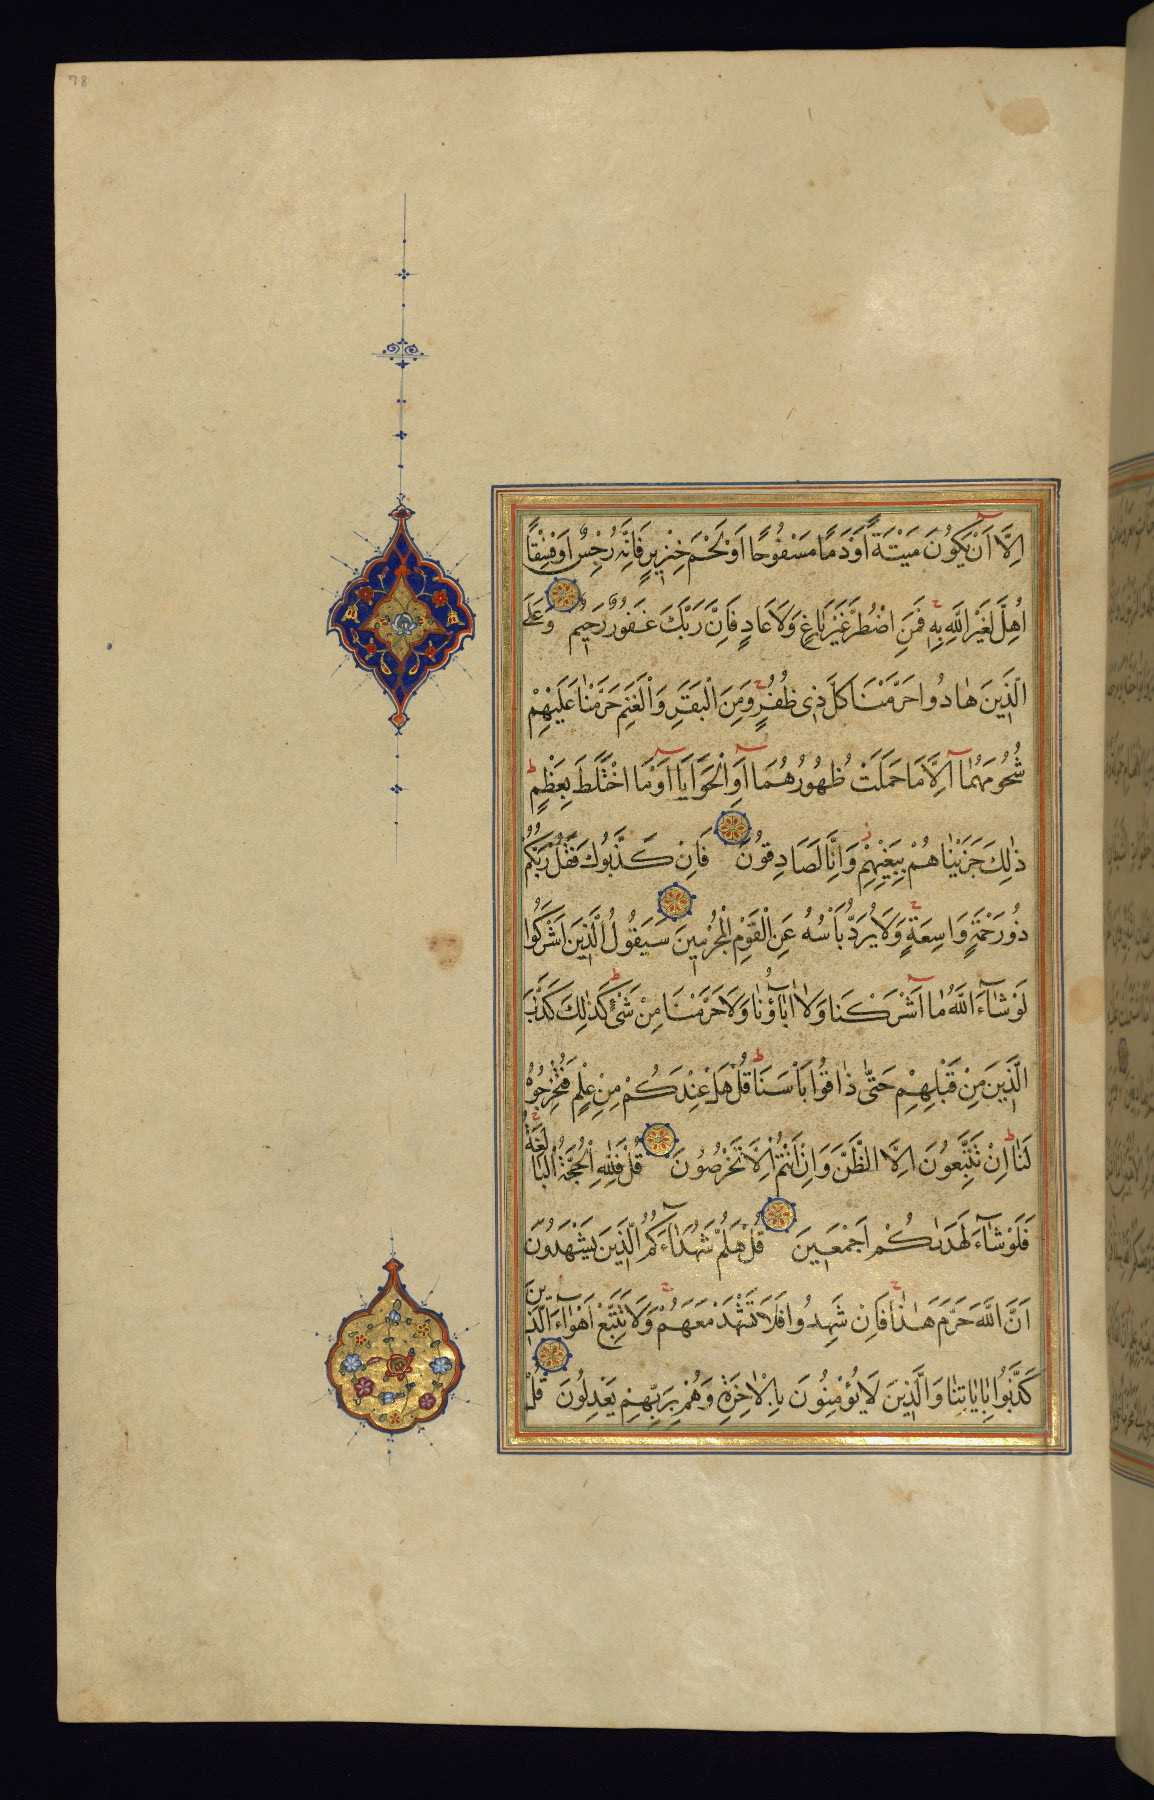 78
اِلَّا اَنْ يَكُونَ مَيْتَةً اَوْ دَمًا مَسْفُوحًا اَوْ لَحْمَ خِنْزِيرٍ فَاِنَّهُ رِجْسٌ اَوْ فِسْقًا
اُهِلَّ لِغَيْرِ اللّٰهِ بِهٖ فَمَنِ اضْطُرَّ غَيْرَ بَاغٍ وَلَا عَادٍ فَاِنَّ رَبَّكَ غَفُورٌ رَحِيمٌ وَعَلَى
الَّذِينَ هَادُوا حَرَّمْنَا كُلَّ ذِى ظُفُرٍ وَمِنَ الْبَقَرِ وَالْغَنَمِ حَرَّمْنَا عَلَيْهِمْ
شُحُومَهُمَا اِلَّا مَا حَمَلَتْ ظُهُورُهُمَا اَوِ الْحَوَايَا اَوْ مَا اخْتَلَطَ بِعَظْمٍ
ذٰلِكَ جَزَيْنَاهُمْ بِبَغْيِهِمْ وَاِنَّا لَصَادِقُونَ فَاِنْ كَذَّبُوكَ فَقُلْ رَبُّكُمْ
ذُو رَحْمَةٍ وَاسِعَةٍ وَلَا يُرَدُّ بَأْسُهُ عَنِ الْقَوْمِ الْمُجْرِمِينَ سَيَقُولُ الَّذِينَ اَشْرَكُوا
لَوْ شَآءَ اللّٰهُ مَا اَشْرَكْنَا وَلَا اٰبَاؤُنَا وَلَا حَرَّمْنَا مِنْ شَىْءٍ كَذٰلِكَ كَذَّبَ
الَّذِينَ مِنْ قَبْلِهِمْ حَتّٰى ذَاقُوا بَأْسَنَا قُلْ هَلْ عِنْدَكُمْ مِنْ عِلْمٍ فَتُخْرِجُوهُ
لَنَا اِنْ تَتَّبِعُونَ اِلَّا الظَّنَّ وَاِنْ اَنْتُمْ اِلَّا تَخْرُصُونَ قُلْ فَلِلّٰهِ الْحُجَّةُ الْبَالِغَةُ
فَلَوْ شَآءَ لَهَدٰىكُمْ اَجْمَعِينَ قُلْ هَلُمَّ شُهَدَآءَكُمُ الَّذِينَ يَشْهَدُونَ
اَنَّ اللّٰهَ حَرَّمَ هٰذَا فَاِنْ شَهِدُوا فَلَا تَشْهَدْ مَعَهُمْ وَلَا تَتَّبِعْ اَهْوَآءَ الَّذِينَ
كَذَّبُوا بِاٰيَاتِنَا وَالَّذِينَ لَا يُؤْمِنُونَ بِالْاٰخِرَةِ وَهُمْ بِرَبِّهِمْ يَعْدِلُونَ قُلْ